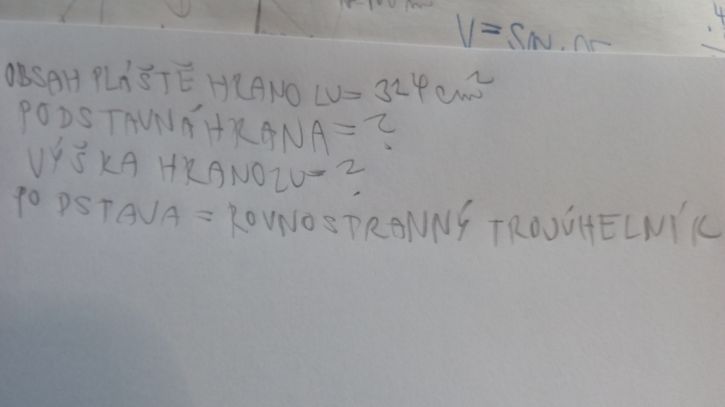 V = Sp . v
OBSAH PLÁŠTĚ HRANOLU = 324 cm²
PODSTAVNÁ HRANA = ?
VÝŠKA HRANOLU = ?
PODSTAVA = ROVNOSTRANNÝ TROJÚHELNÍK